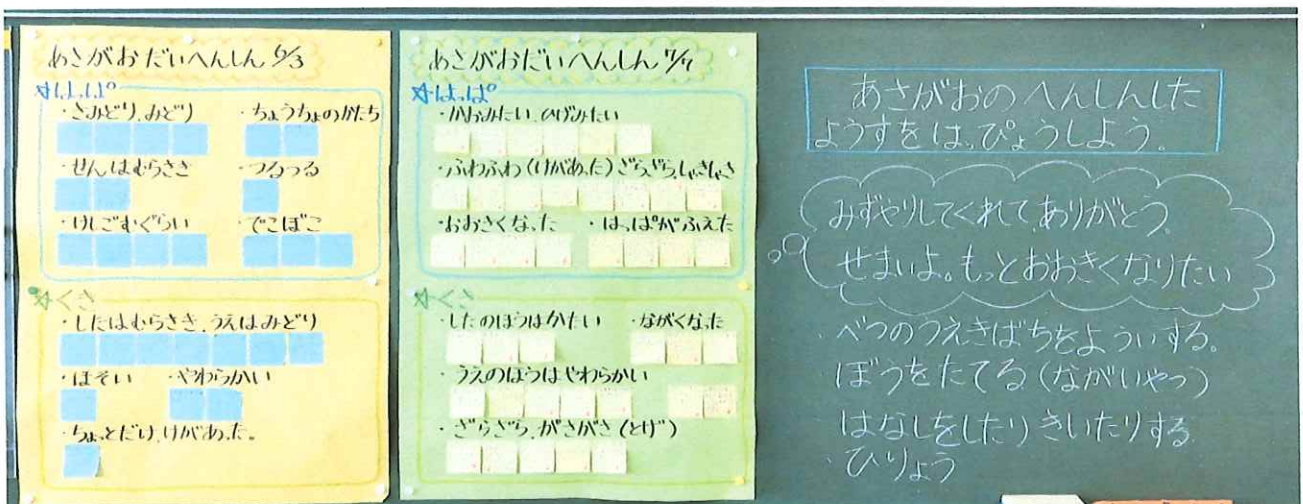 あさがおだいへんしん 6/3
☆はっぱ
・きみどり、みどり ・ちょうちょのかたち
・せんはむらさき ・つるつる
・けしごむぐらい ・でこぼこ
☆くき
・したはむらさき、うえはみどり
・ほそい ・やわらかい
・ちょっとだけ、けがあった。
あさがおだいへんしん 7/7
☆はっぱ
・かおみたい、ひげみたい
・ふわふわ(けがあった)ざらざら、しゃきしゃき
・おおきくなった ・はっぱがふえた
☆くき
・したのほうはかたい ・ながくなった
・うえのほうはやわらかい
・ざらざら、がさがさ(とげ)
あさがおのへんしんした
ようすをはっぴょうしよう。
みずやりしてくれてありがとう。
せまいよ。もっとおおきくなりたい
・べつのうえきばちをよういする。
・ぼうをたてる(ながいやつ)
・はなしをしたりきいたりする
・ひりょう